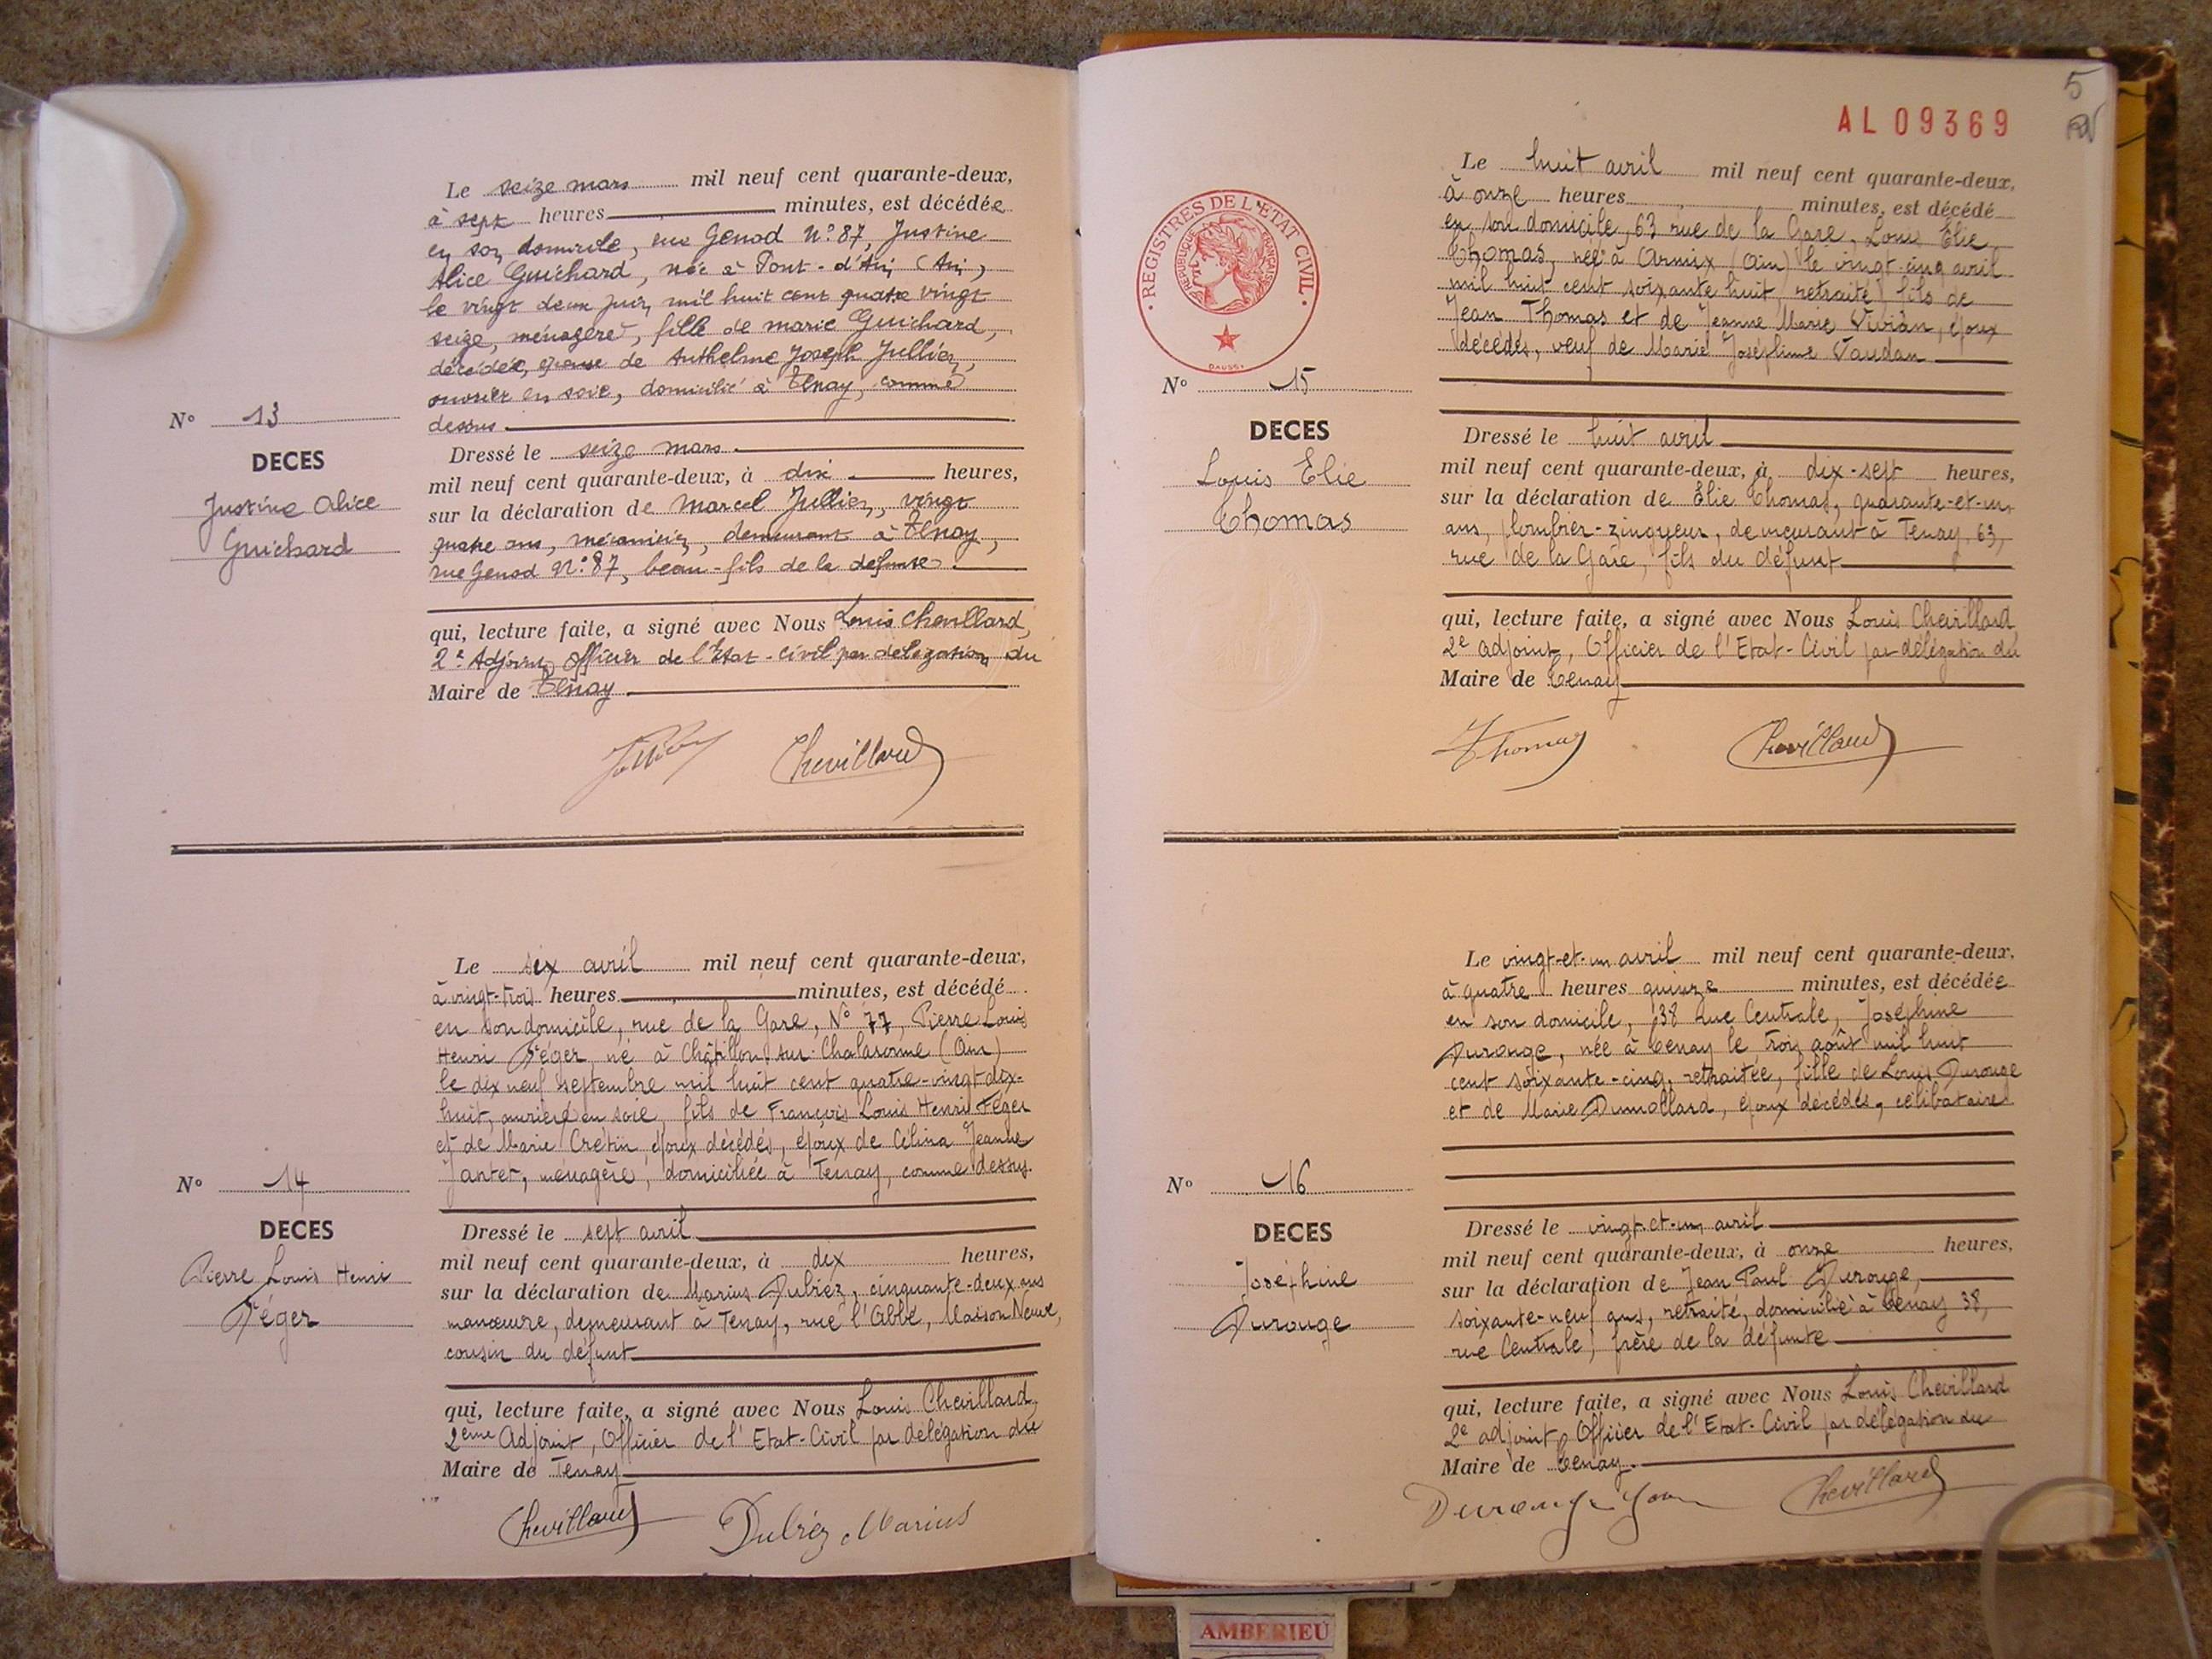 Le seize mars mil neuf cent quarante-deux,
à sept heures minutes, est décédée
en son domicile, rue Genod N° 87, Justine
Alice Guichard, née à Pont-d'Ain (Ain)
le vingt deux juin mil huit cent quatre vingt
seize, ménagère, fille de marie Guichard,
décédée, épouse de Anthelme Joseph Jullien,
ouvrier en soie, domicilié à Tenay, comme
dessus
N° 13
DECES
Justine Alice
Guichard
Dressé le seize mars
mil neuf cent quarante-deux, à dix heures,
sur la déclaration de Marcel Jullien, vingt
quatre ans, mécanicien, demeurant à Tenay,
rue Genod N° 87, beau-fils de la défunte
qui, lecture faite, a signé avec Nous Louis Chevillard,
2e Adjoint, officier de l'Etat-civil par délégation du
Maire de Tenay
Chevillard
Le six avril mil neuf cent quarante-deux,
à vingt-trois heures minutes, est décédé
en son domicile, rue de la Gare, N° 77, Pierre Louis
Henri Féger, né à Châtillon-sur-Chalaronne (Ain)
le dix neuf septembre mil huit cent quatre-vingt-dix-
huit, ouvrier en soie, fils de François Louis Henri Féger
et de Marie Crétin, époux décédés, époux de Célina Jeanne
Jantet, ménagère, domiciliée à Tenay, comme dessus.
N° 14
DECES
Pierre Louis Henri
Féger
Dressé le sept avril
mil neuf cent quarante-deux, à dix heures,
sur la déclaration de Marius Dubiez, cinquante-deux ans
manœuvre, demeurant à Tenay, rue l'Abbé, Maison Neuve,
cousin du défunt
qui, lecture faite, a signé avec Nous Louis Chevillard,
2ème Adjoint, Officier de l'Etat-Civil par délégation du
Maire de Tenay
Chevillard Dubiez Marius
5
AL 09369
REGISTRES DE L'ETAT CIVIL
REPUBLIQUE FRANÇAISE
Le huit avril mil neuf cent quarante-deux,
à onze heures minutes, est décédé
en son domicile, 63 rue de la Gare, Louis Elie
Thomas, né à Armix (Ain) le vingt-cinq avril
mil huit cent soixante huit, retraité, fils de
Jean Thomas et de Jeanne Marie Vivian, époux
décédés, veuf de Marie Joséphine Vaudan
N° 15
DECES
Louis Elie
Thomas
Dressé le huit avril
mil neuf cent quarante-deux, à dix-sept heures,
sur la déclaration de Elie Thomas, quarante-et-un
ans, plombier-zingueur, demeurant à Tenay, 63,
rue de la Gare, fils du défunt
qui, lecture faite, a signé avec Nous Louis Chevillard
2e adjoint, Officier de l'Etat-Civil par délégation du
Maire de Tenay
Thomas Chevillard
Le vingt-et-un avril mil neuf cent quarante-deux,
à quatre heures quinze minutes, est décédée
en son domicile, 38 rue Centrale, Joséphine
Durouge, née à Tenay le trois août mil huit
cent soixante-cinq, retraitée, fille de Louis Durouge
et de Marie Dumollard, époux décédés, célibataire
N° 16
DECES
Joséphine
Durouge
Dressé le vingt-et-un avril
mil neuf cent quarante-deux, à onze heures,
sur la déclaration de Jean Paul Durouge,
soixante-neuf ans, retraité, domicilié à Tenay 38,
rue Centrale, frère de la défunte
qui, lecture faite, a signé avec Nous Louis Chevillard
2e adjoint, Officier de l'Etat-Civil par délégation du
Maire de Tenay.
Durouge Jean Chevillard
AMBERIEU